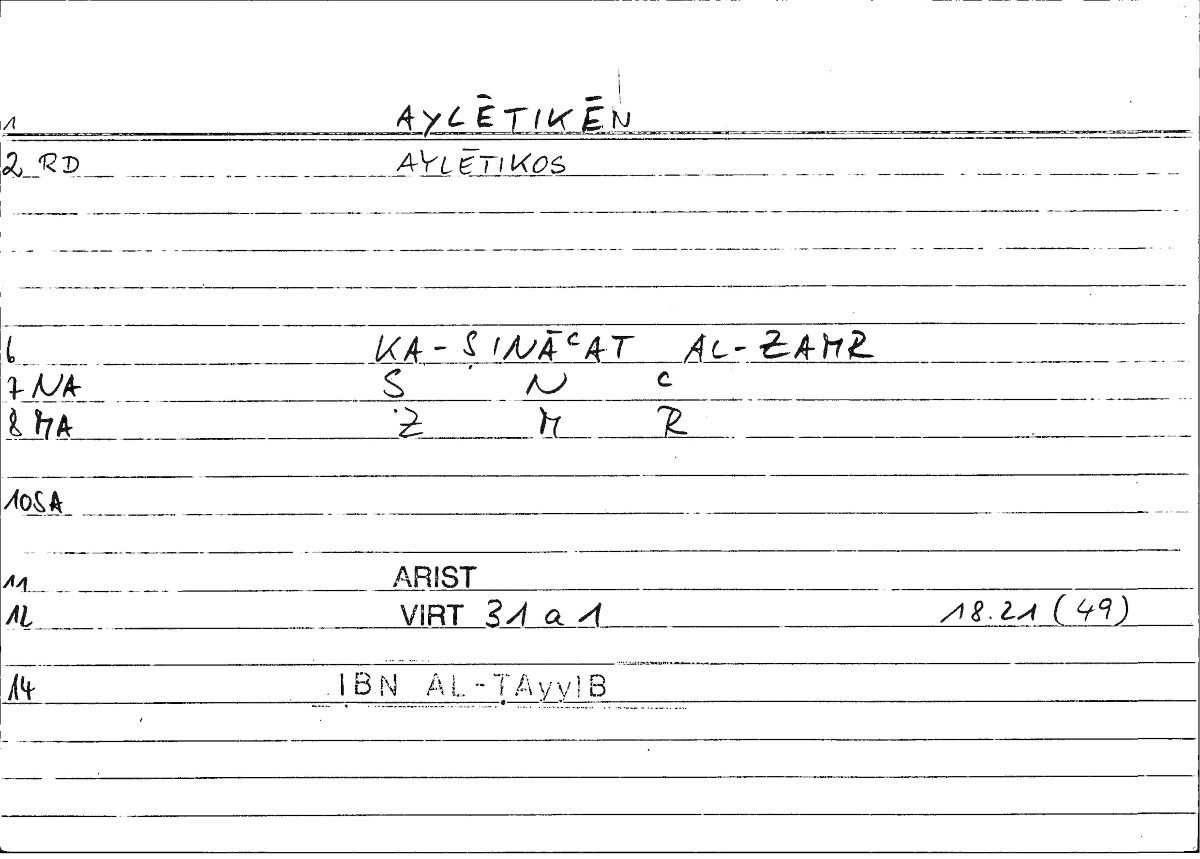 1 AYLĒTIKĒN
2 RD AYLĒTIKOS
6 KA-ṢINĀᶜAT AL-ZAMR
7 NA Ṣ N ᶜ
8 MA Z M R
10SA
11 ARIST
12 VIRT 31 a 1 18.21 (49)
14 IBN AL-ṬAyyIB